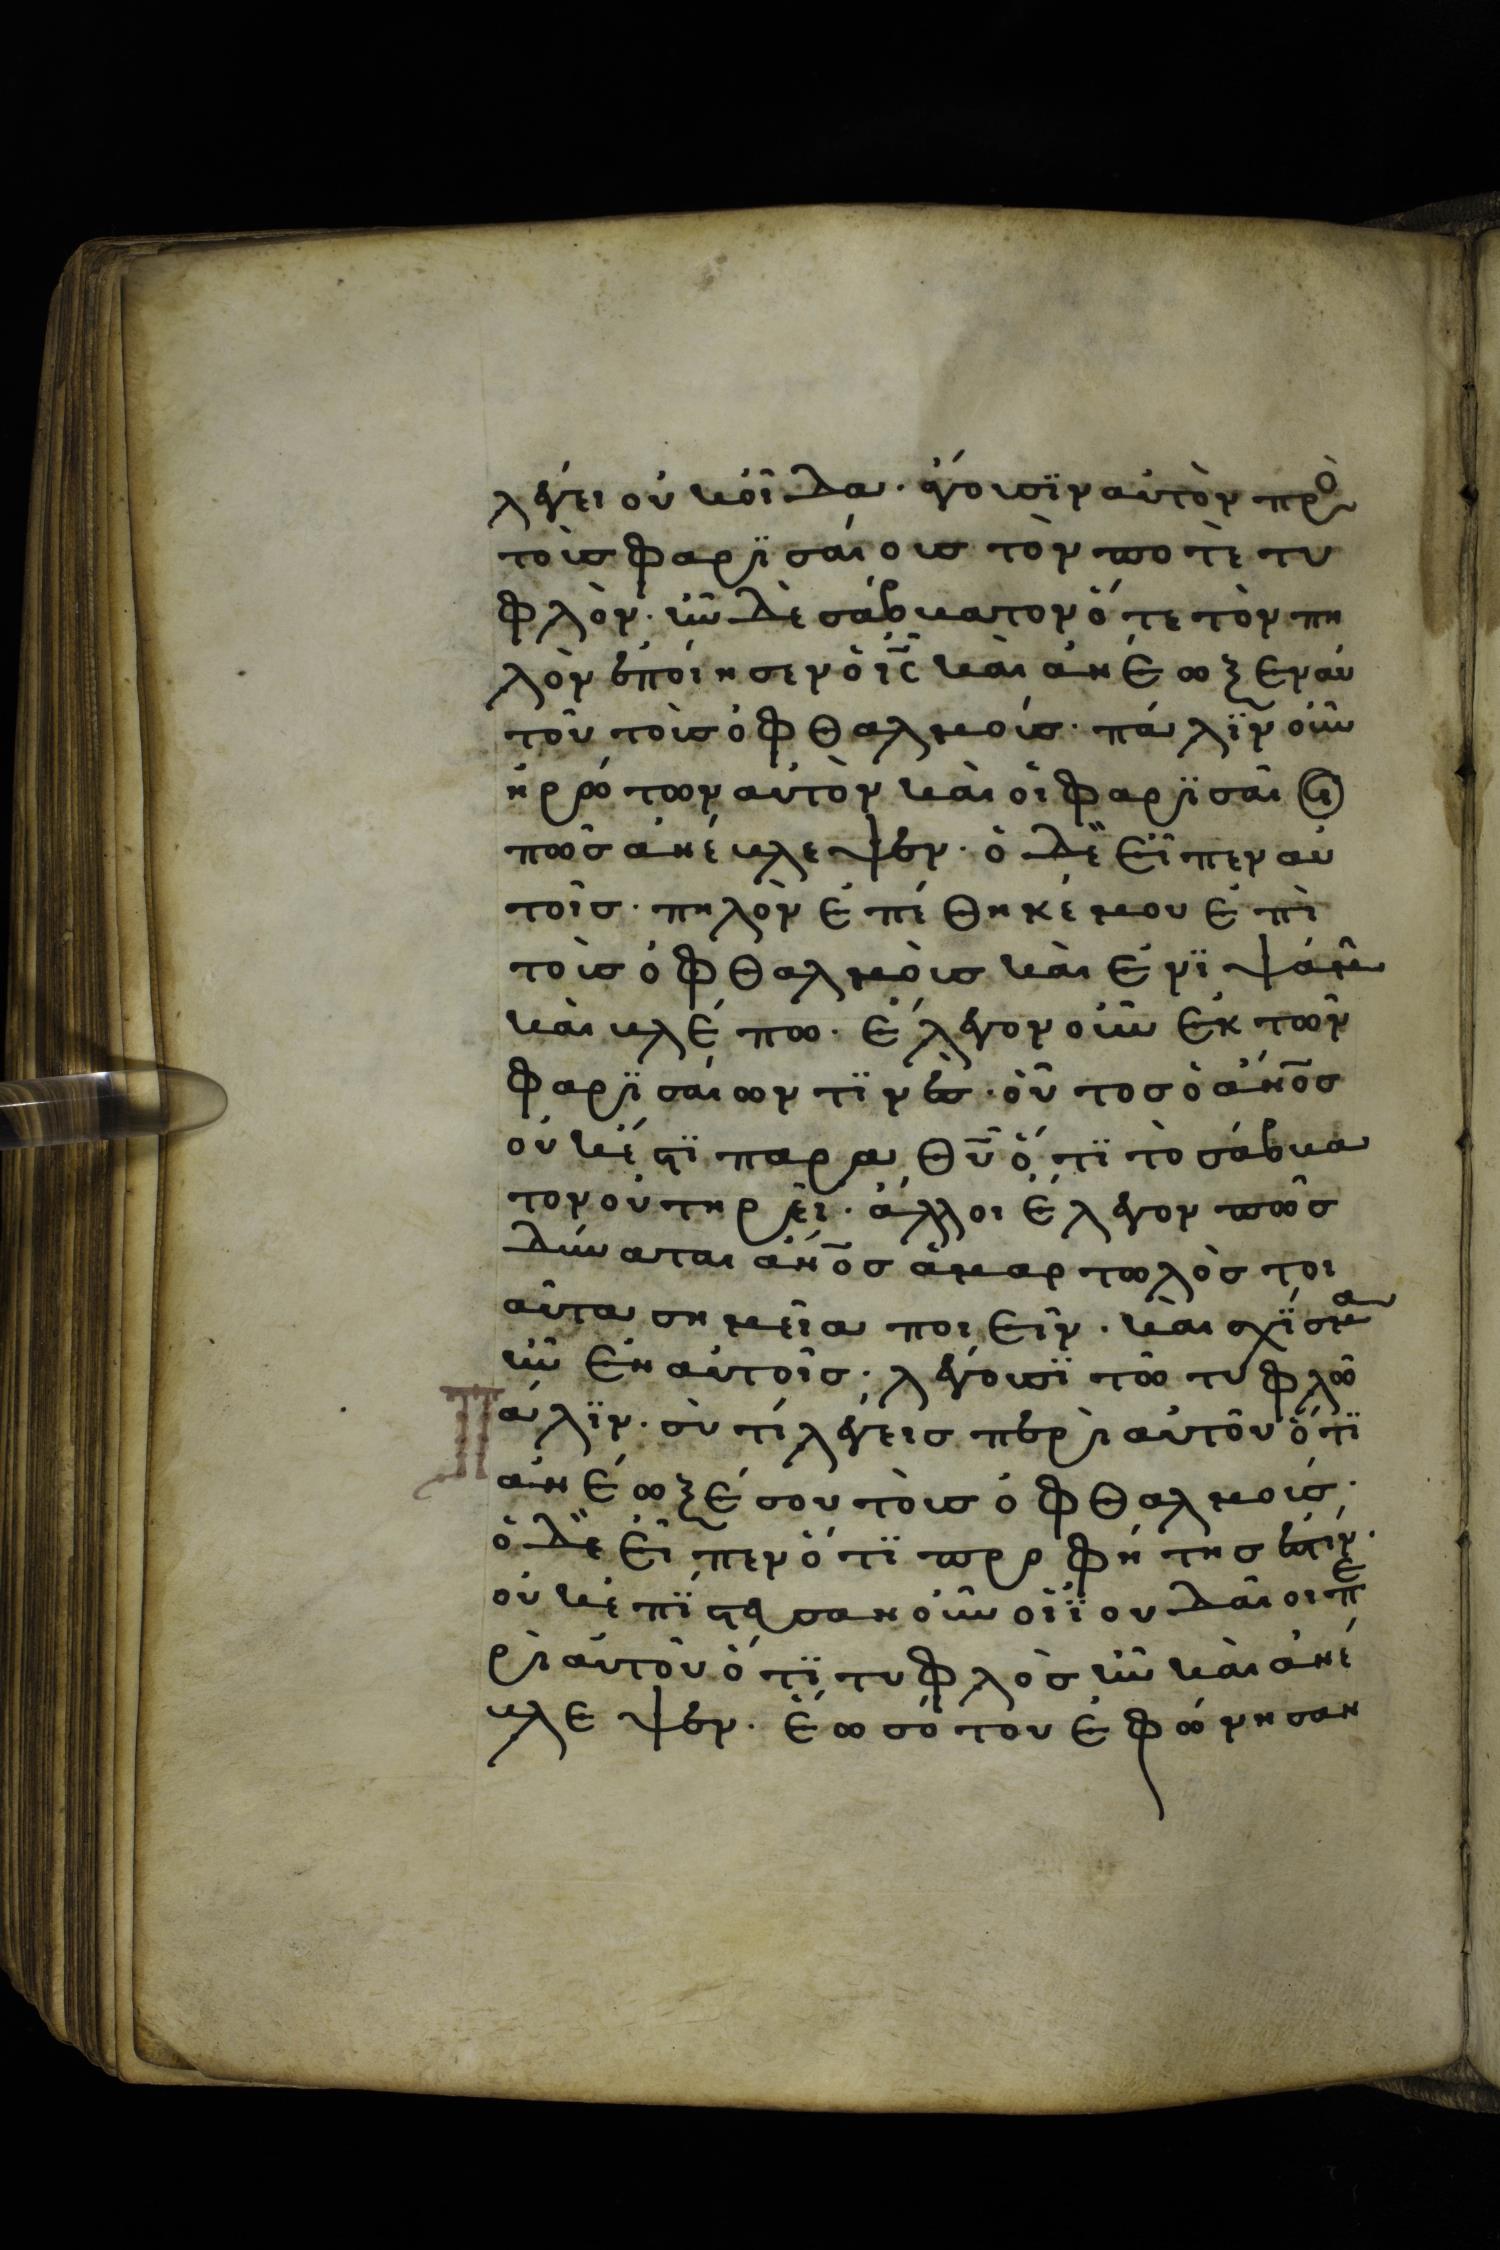 λέγει οὐκ οἶδα· ἄγουσϊν αὐτὸν πρὸ
τοὺσ φαρϊσαίουσ τὸν ποτὲ τυ
φλόν· ἦν δὲ σάββατον ὅτε τὸν πη
λὸν ἐποίησεν ὁ ις̅ καὶ ἀνέωξεν αὐ
τοῦ τοὺσ ὀφθαλμούσ· πάλϊν οὖν
ἠρώτων αὐτὸν καὶ οἱ φαρϊσαῖοι
πῶσ ἀνέβλεψεν· ὁ δὲ εἶπεν αὐ
τοῖσ· πηλὸν ἐπέθηκέ μου ἐπὶ
τοὺσ ὀφθαλμοὺσ καὶ ἐνϊψάμην
καὶ βλέπω· ἔλεγον οὖν ἐκ τῶν
φαρϊσαίων τϊνὲσ· οὗτοσ ὁ ἀν̅οσ
οὐκ ἔστϊ παρα θυ̅ ὅτϊ τὸ σάββα
τον οὐ τηρεῖ· ἄλλοι ἔλεγον πῶσ
δύναται ἀν̅οσ ἁμαρτωλὸσ τοι
αῦτα σημεῖα ποιεῖν· καὶ σχίσμα
ἦν ἐν αὐτοῖσ· λέγουσϊ τῶ τυφλῶ
Πάλϊν· σὺ τί λέγεισ περὶ αὐτοῦ ὅτϊ
ἀνέωξέ σου τοὺσ ὀφθαλμούσ;
ὁ δὲ εἶπεν ὅτϊ προφήτησ ἐστίν·
οὐκ ἐπίστευσαν οὖν οἱ ϊουδαῖοι πε
ρὶ αὐτοῦ ὅτϊ τυφλὸσ ἦν καὶ ἀνέ
βλεψεν· ἕωσ ὅτου ἐφώνησαν